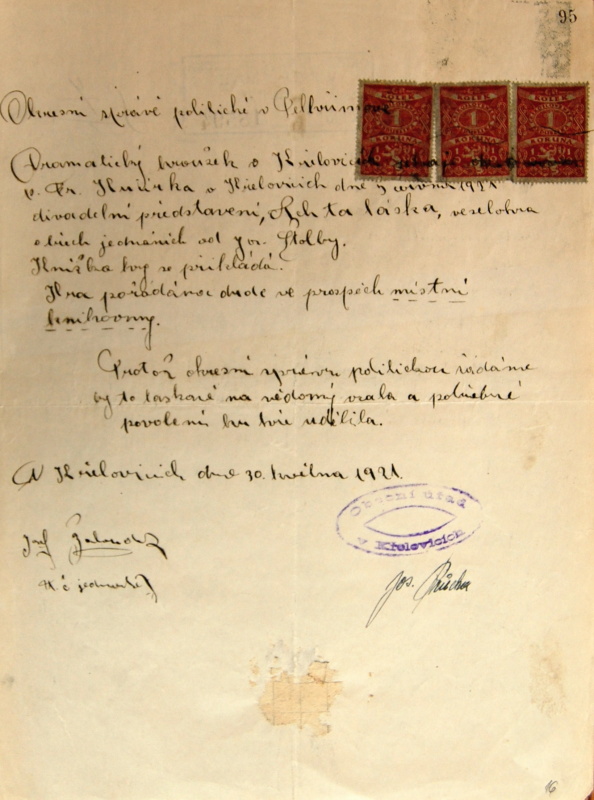 95
Okresní správě politické v Pelhřimově
KOLEK KOLEK KOLEK
1 1 1
KORUNA KORUNA KORUNA
Dramatický kroužek v Křelovicích
p. Fr. v Křelovicích dne 5 června 1921
divadelní představení, Ach ta láska, veselohra
o třech jednáních od Jos. Štolby.
Knížka hry se přikládá.
Hra pořádána bude ve prospěch místní
knihovny.
Protož okresní správu politickou žádáme
by to laskavě na vědomý vzala a potřebné
povolení ku hře udělila.
V Křelovicích dne 30. května 1921.
Obecní úřad
v Křelovicích
Josef
t. č. jednatel
Jos.
16